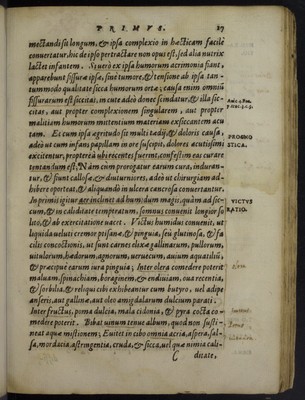 PRIMVS. 17
mectandi sit longum, & ipsa complexio in hæcticam facile
conuertatur, hic de ipso pertractare non opus est, sed alia nutrix
lactet infantem. Si uero ex ipso humorum acrimonia fiant,
apparebunt fissuræ ipsæ, sine tumore, & tensione ab ipsa tan-
tummodo qualitate sicca humorum ortæ; causa enim omniū
fissurarum est siccitas, in cute adeò donec findatur, & illa sic-
citas, aut propter complexionem singularem, aut propter
malitiam humorum mittentium materiam exsiccantem acu
tam. Et cum ipsa ægritudo sit multi tedij, & doloris causa,
adeò ut cum infans papillam in ore suscipit, dolores acutissimi
excitentur, propterea ubi recentes fuerint, confestim eas curare
tentandum est. Nam cum prorogatur earum cura, induran-
tur, & fiunt callosæ, & diuturniores, adeò ut chirurgiam ad-
hibere oporteat, & aliquando in ulcera cancrosa conuertantur.
In primis igitur aer inclinet ad humidum magis, quàm ad sic-
cum, & in caliditate temperatum, somnus conuenit longior so
lito, & ab exercitatione uacet. Victus humidus conuenit, ut
liquida ueluti cremor ptisanæ, & pinguia, seù glutinosa, & fa
cilis concoctionis, ut sunt carnes elixæ gallinarum, pullorum,
uitulorum, hædorum, agnorum, ueruecum, auium aquatiliū,
& præcipue earum iura pinguia; Inter olera comedere poterit
maluam, spinachiam, boraginem, & endiuiam, oua recentia,
& sorbilia, & reliqui cibi exhibeantur cum butyro, uel adipe
anseris, aut gallinæ, aut oleo amigdalarum dulcium parati.
Inter fructus, poma dulcia, mala cidonia, & pyra cocta co-
medere poterit. Bibat uinum tenue album, quod non susti-
neat aquæ mistionem; Euitet in cibo omnia acria, aspera, sal-
sa, mordacia, astringentia, cruda, & sicca, uel quæ nimia cali-
C ditate,
PROGNO
STICA.
VICTVS
RATIO.